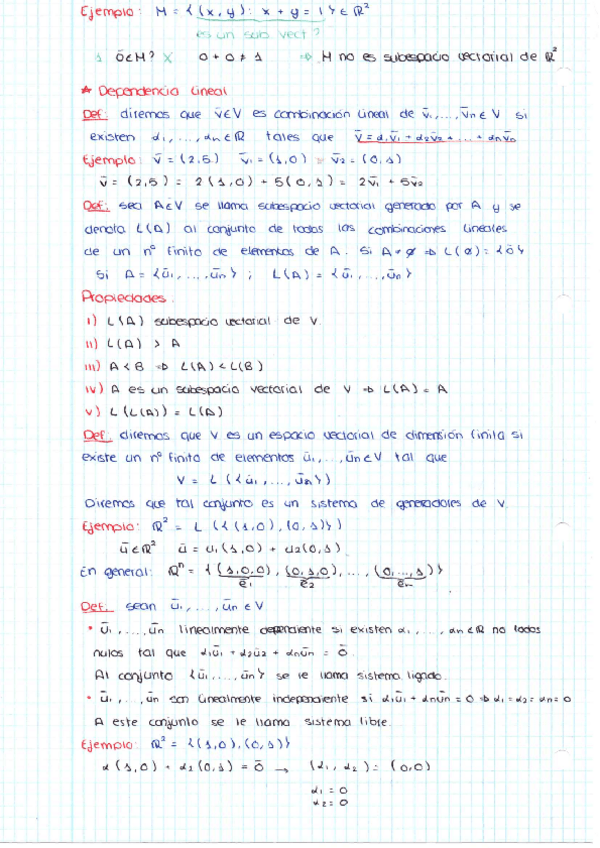 Ejemplo: M = {(x, y): x + y = 1} ∈ ℝ²
es un sub vect?
1 ō∈M? X 0 + 0 ≠ 1 ⇒ M no es subespacio vectorial de ℝ²
★ Dependencia lineal
Def: diremos que v̄∈V es combinación lineal de v̄₁, ..., v̄n ∈ V si
existen α₁, ..., αn ∈ ℝ tales que v̄ = α₁v̄₁ + α₂v̄₂ + ... + αnv̄n
Ejemplo: v̄ = (2,5) v̄₁ = (1,0) v̄₂ = (0,1)
v̄ = (2,5) = 2(1,0) + 5(0,1) = 2v̄₁ + 5v̄₂
Def: sea A⊂V se llama subespacio vectorial generado por A y se
denota L(A) al conjunto de todas las combinaciones lineales
de un nº finito de elementos de A. Si A = ∅ ⇒ L(∅) = {ō}
Si A = {ū₁, ..., ūn} ; L(A) = {ū₁, ..., ūn}
Propiedades:
I) L(A) subespacio vectorial de V.
II) L(A) ⊃ A
III) A ⊂ B ⇒ L(A) ⊂ L(B)
IV) A es un subespacio vectorial de V ⇒ L(A) = A
V) L(L(A)) = L(A)
Def: diremos que V es un espacio vectorial de dimensión finita si
existe un nº finito de elementos ū₁, ..., ūn∈V tal que
V = L({ū₁, ..., ūn})
Diremos que tal conjunto es un sistema de generadores de V.
Ejemplo: ℝ² = L({(1,0), (0,1)})
ū∈ℝ² ū = u₁(1,0) + u₂(0,1)
En general: ℝⁿ = {(1,0,0), (0,1,0), ..., (0,...,1)}
e₁ e₂ en
Def: sean ū₁, ..., ūn ∈ V
• ū₁, ..., ūn linealmente dependiente si existen α₁, ..., αn∈ℝ no todos
nulos tal que α₁ū₁ + α₂ū₂ + αnūn = ō.
Al conjunto {ū₁, ..., ūn} se le llama sistema ligado.
• ū₁, ..., ūn son linealmente independiente si α₁ū₁ + αnūn = 0 ⇒ α₁ = α₂ = αn = 0
A este conjunto se le llama sistema libre.
Ejemplo: ℝ² = {(1,0), (0,1)}
α(1,0) + α₂(0,1) = ō → (α₁, α₂) = (0,0)
α₁ = 0
α₂ = 0